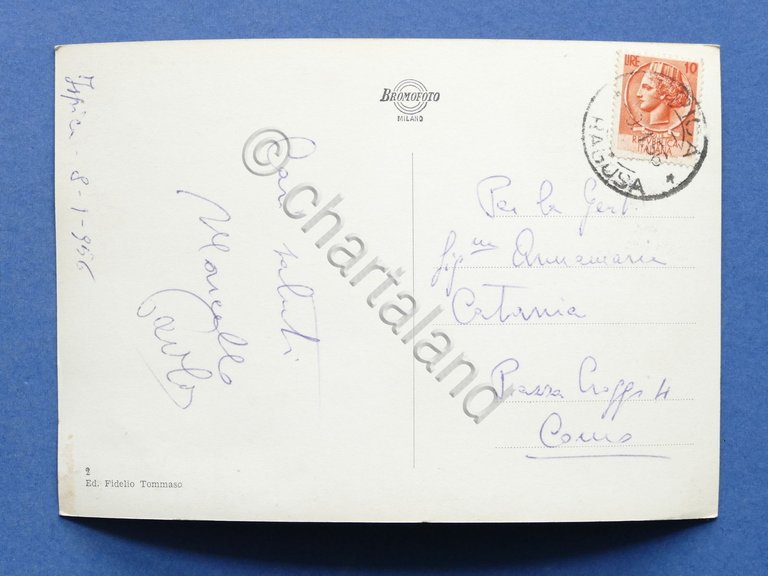 Ispica - 8-1-956
BROMOFOTO
MILANO
LIRE 10
RAGUSA
Cari saluti
Marcello
Per la Gent.
Sig.na Annamaria
Catania
Piazza 4
Como
2
Ed. Fidelio Tommaso
© chartaland